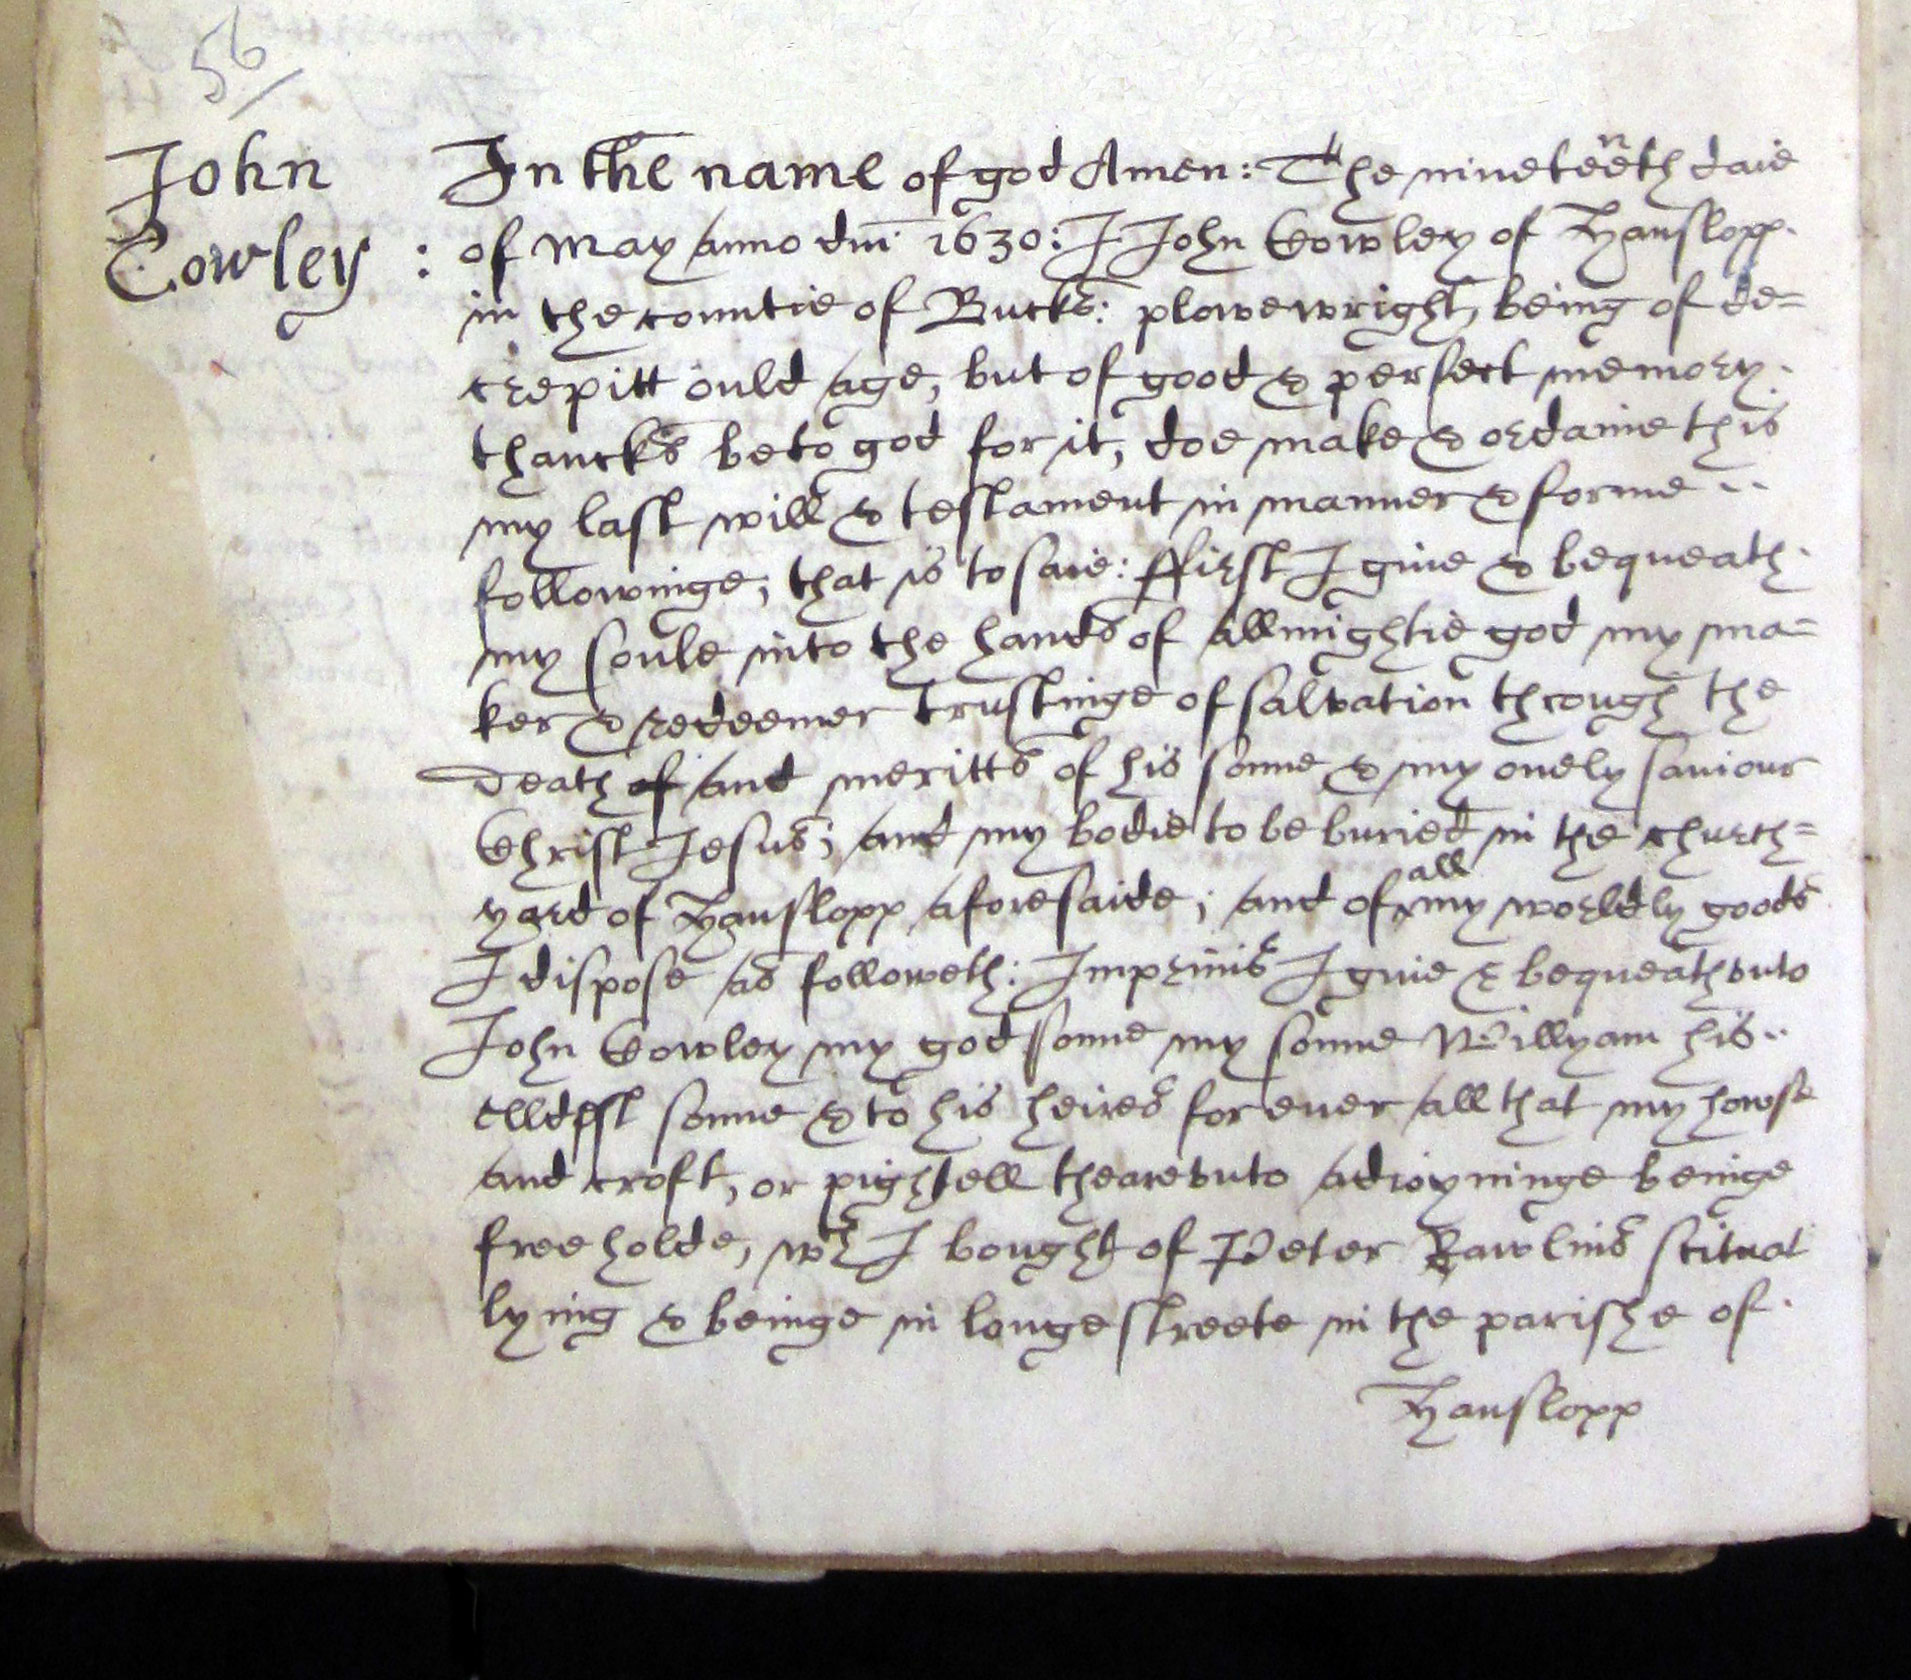 56
John
Cowley :
In the name of god Amen: The nineteenth daie
of May anno dni 1630: I John Cowley of Hanslopp
in the countie of Bucks: plowewright, being of de=
crepitt ould age, but of good & perfect memory
thancks be to god for it, doe make & ordaine this
my last will & testament in manner & forme
followinge, that is to saie: ffirst I giue & bequeath
my soule into the hands of allmightie god my ma=
ker & redeemer trustinge of salvation through the
death of and meritts of his sonne & my onely saviour
Christ Jesus; and my bodie to be buried in the church=
yard of Hanslopp aforesaide; and of all my worldly goods
I dispose as followeth: Imprimis I giue & bequeath vnto
John Cowley my god sonne my sonne Willyam his
elldest sonne & to his heires for euer all that my howse
and croft, or pightell thearevnto adioyninge beinge
free holde, wch I bought of Peter Rawlins scituat
lying & beinge in longe streete in the parishe of
Hanslopp